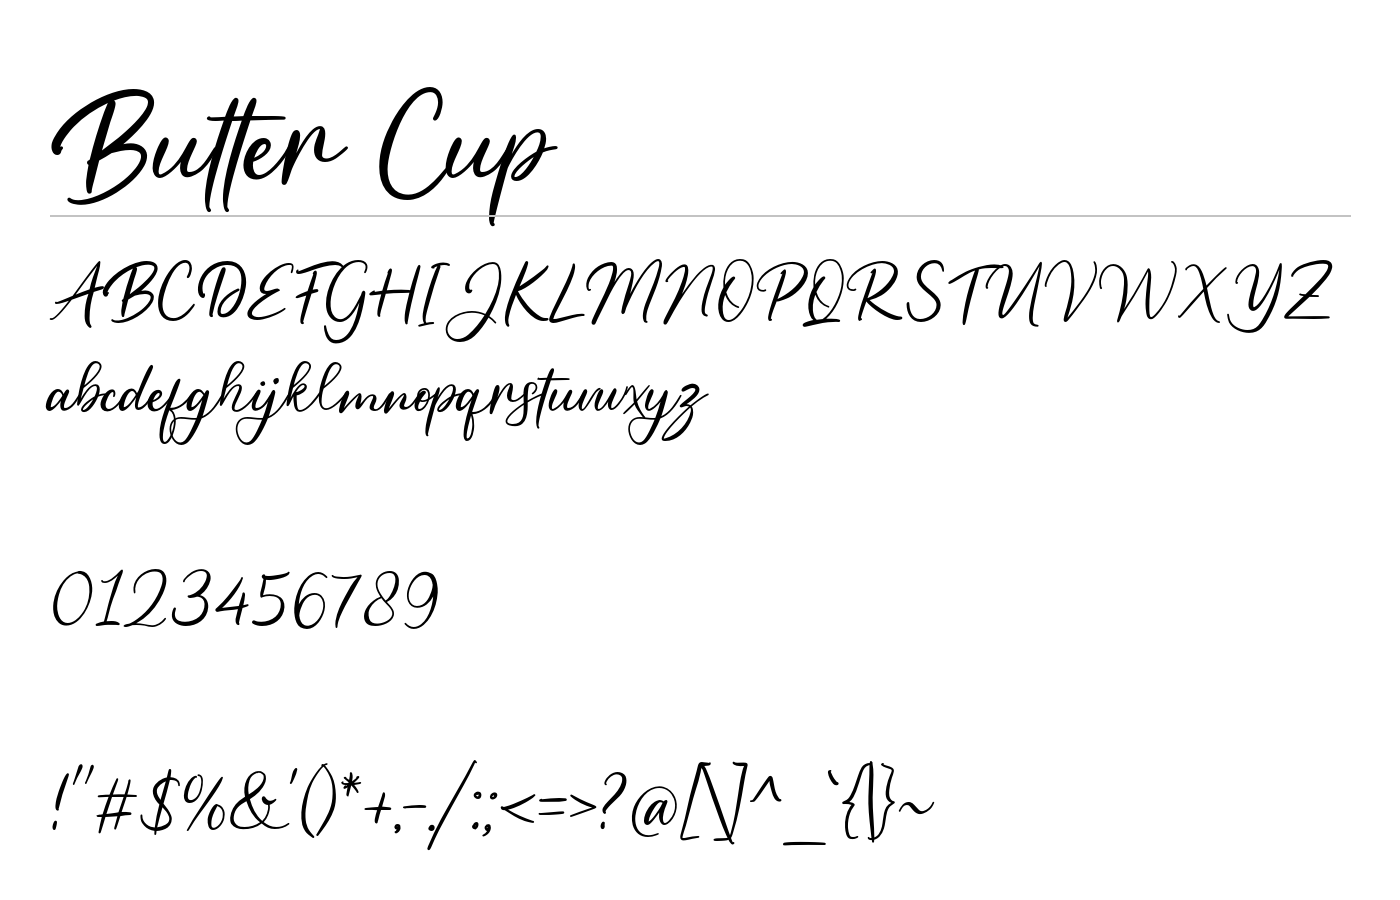 Butter Cup
ABCDEFGHIJKLMNOPQRSTUVWXYZ
abcdefghijklmnopqrstuvwxyz
0123456789
!"#$%&'()*+,-./:;<=>?@[\]^_`{|}~